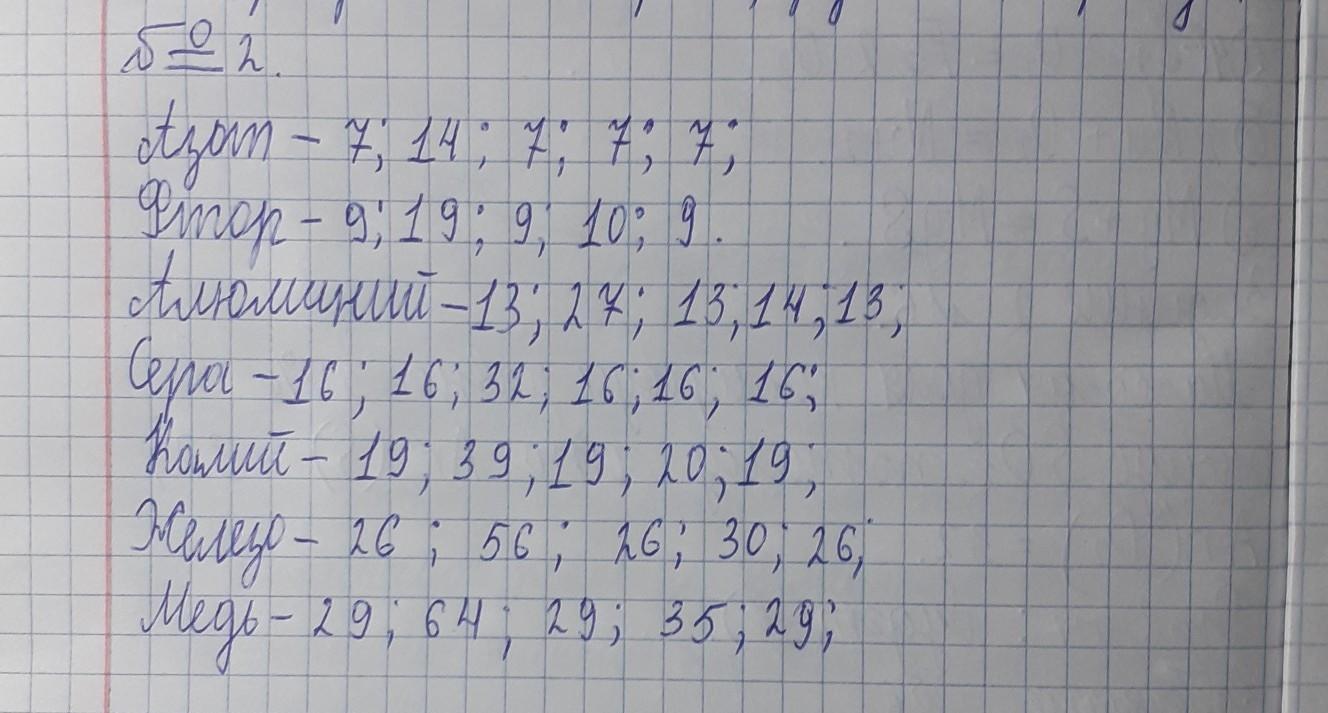 № 2.
Азот – 7; 14; 7; 7; 7;
Фтор – 9; 19; 9; 10; 9.
Алюминий – 13; 27; 13; 14; 13;
Сера – 16; 16; 32; 16; 16; 16;
Калий – 19; 39; 19; 20; 19;
Железо – 26; 56; 26; 30; 26;
Медь – 29; 64; 29; 35; 29;